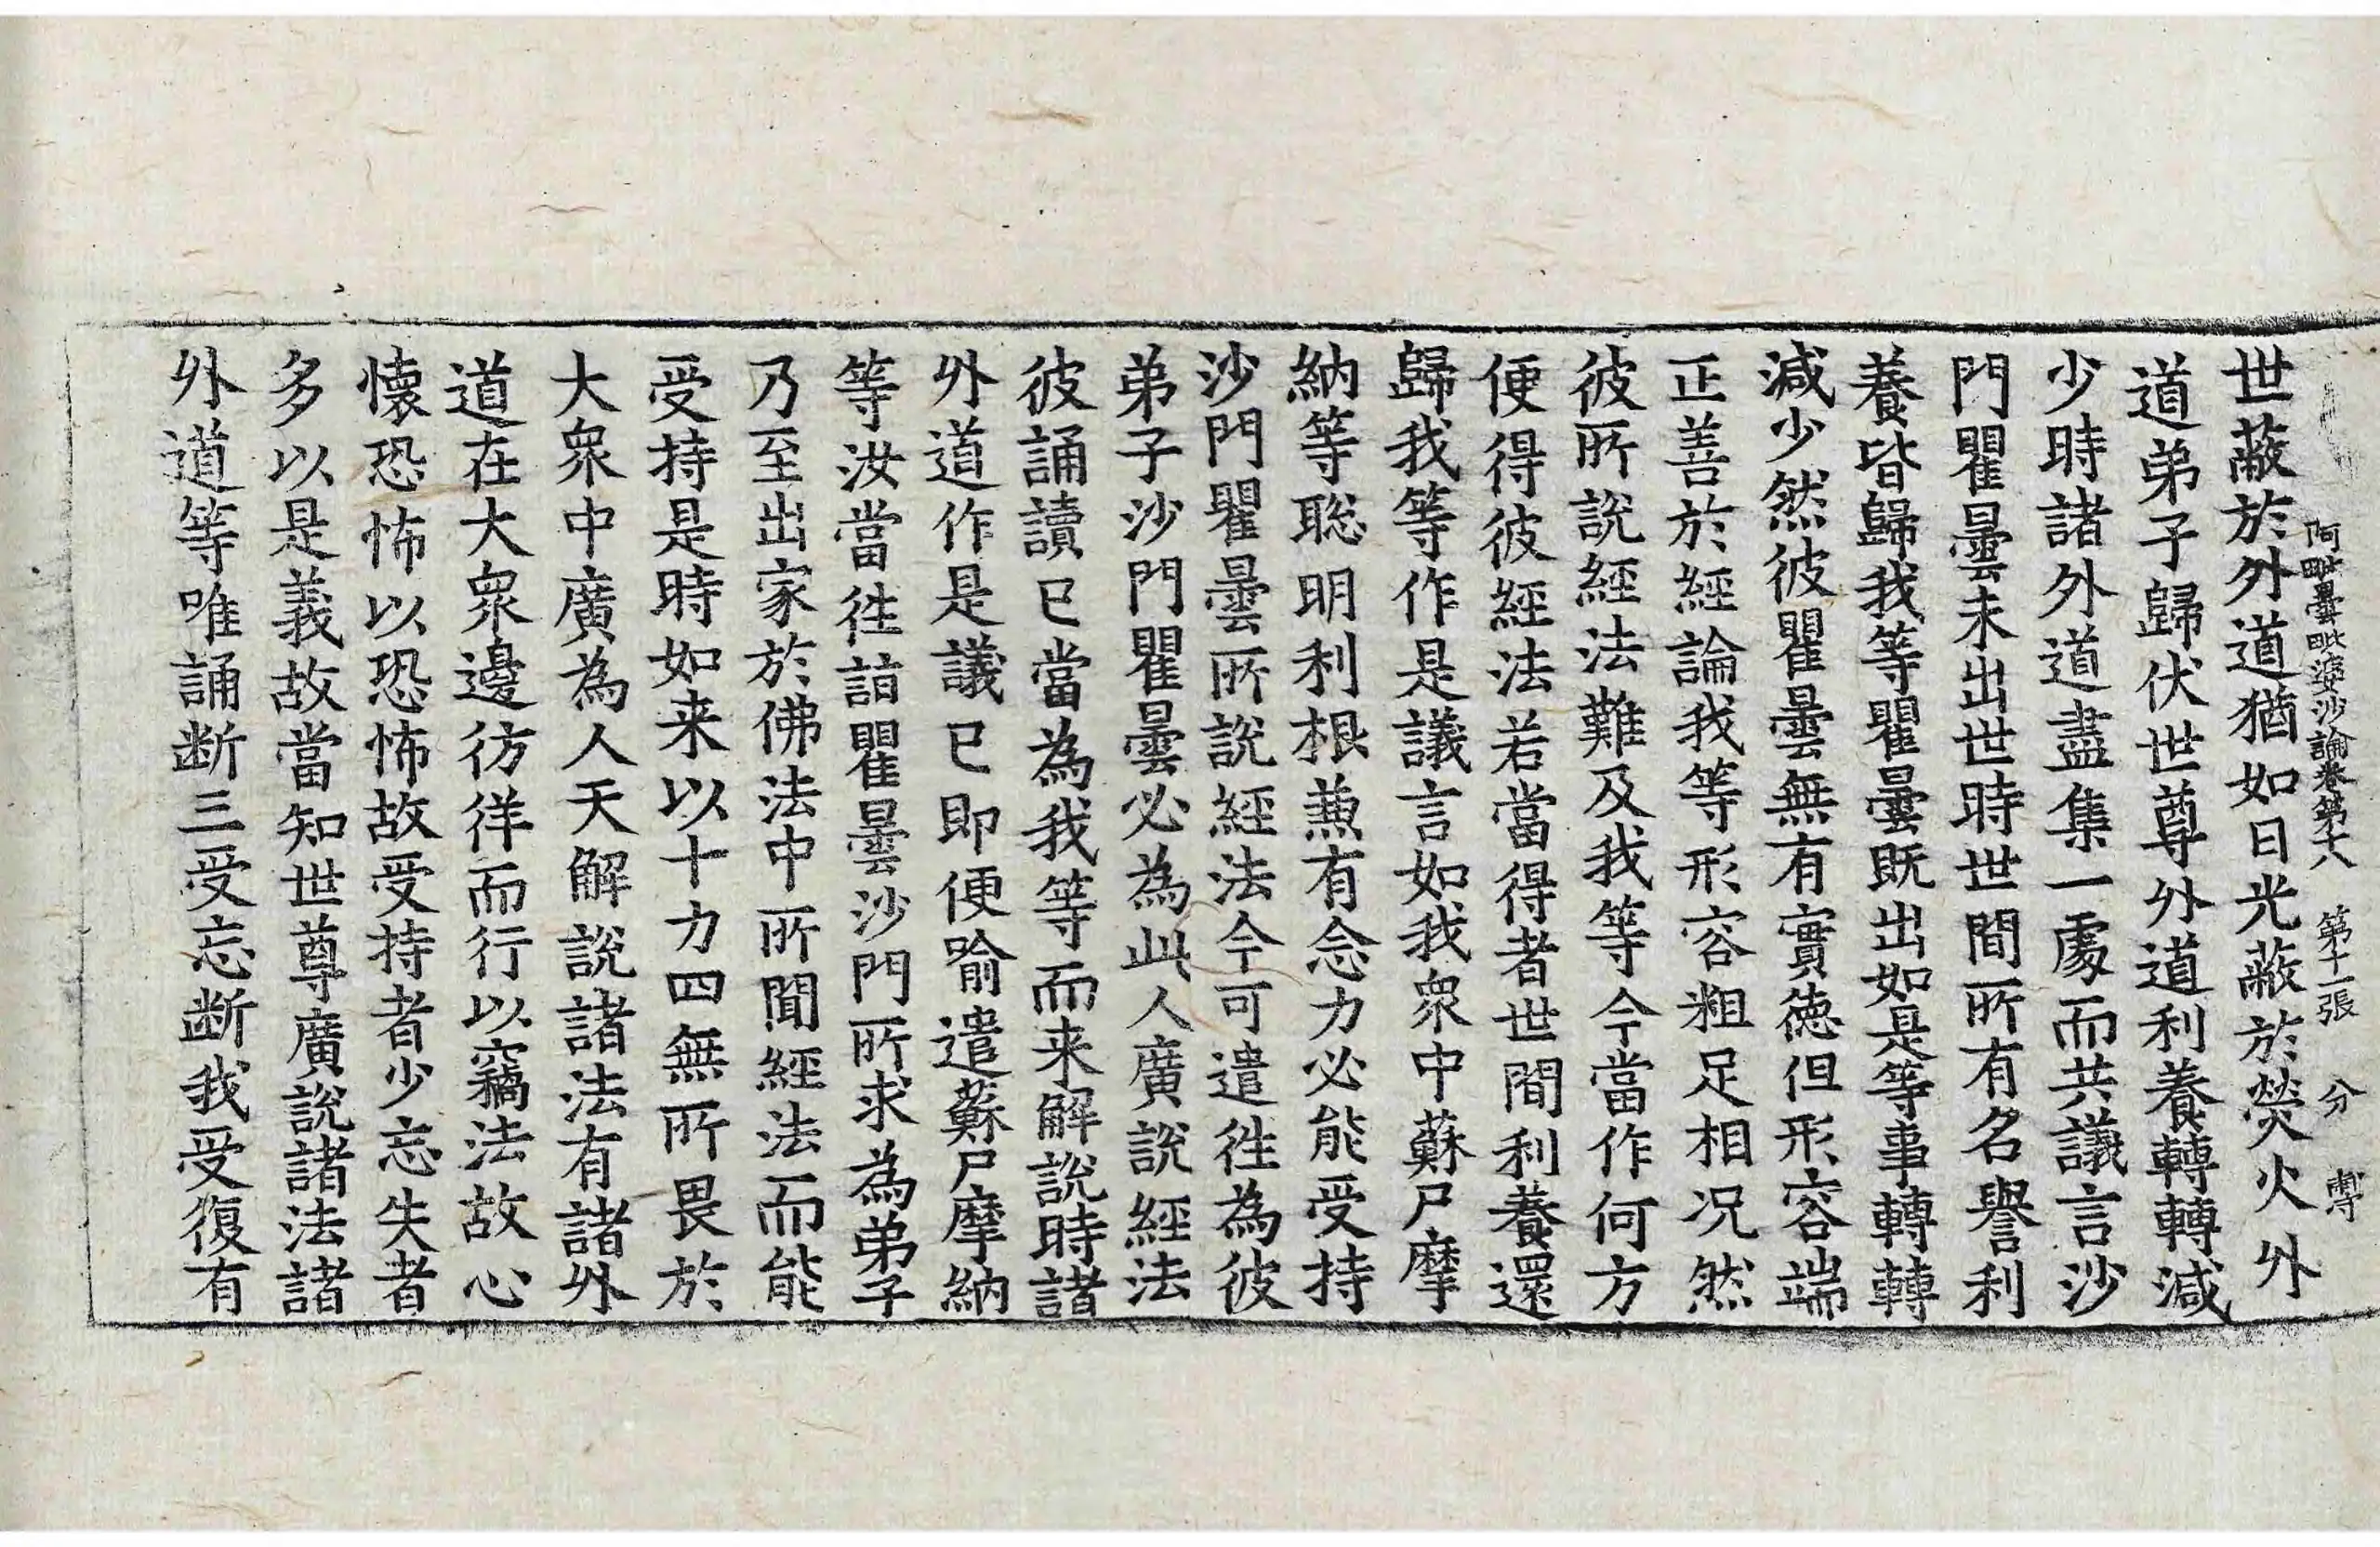 阿毗曇毗婆沙論卷第十八 第十一張 分 專
世蔽於外道猶如日光蔽於熒火外
道弟子歸伏世尊外道利養轉轉減
少時諸外道盡集一處而共議言沙
門瞿曇未出世時世間所有名譽利
養皆歸我等瞿曇既出如是等事轉轉
減少然彼瞿曇無有實德但形容端
正善於經論我等形容粗足相況然
彼所說經法難及我等今當作何方
便得彼經法若當得者世間利養還
歸我等作是議言如我眾中蘇尸摩
納等聡明利根兼有念力必能受持
沙門瞿曇所說經法今可遣徃為彼
弟子沙門瞿曇必為此人廣說經法
彼誦讀已當為我等而来解說時諸
外道作是議已即便喻遣蘇尸摩納
等汝當徃詣瞿曇沙門所求為弟子
乃至出家於佛法中所聞經法而能
受持是時如来以十力四無所畏於
大眾中廣為人天解說諸法有諸外
道在大眾邊彷徉而行以竊法故心
懷恐怖以恐怖故受持者少忘失者
多以是義故當知世尊廣說諸法諸
外道等唯誦断三受忘断我受復有